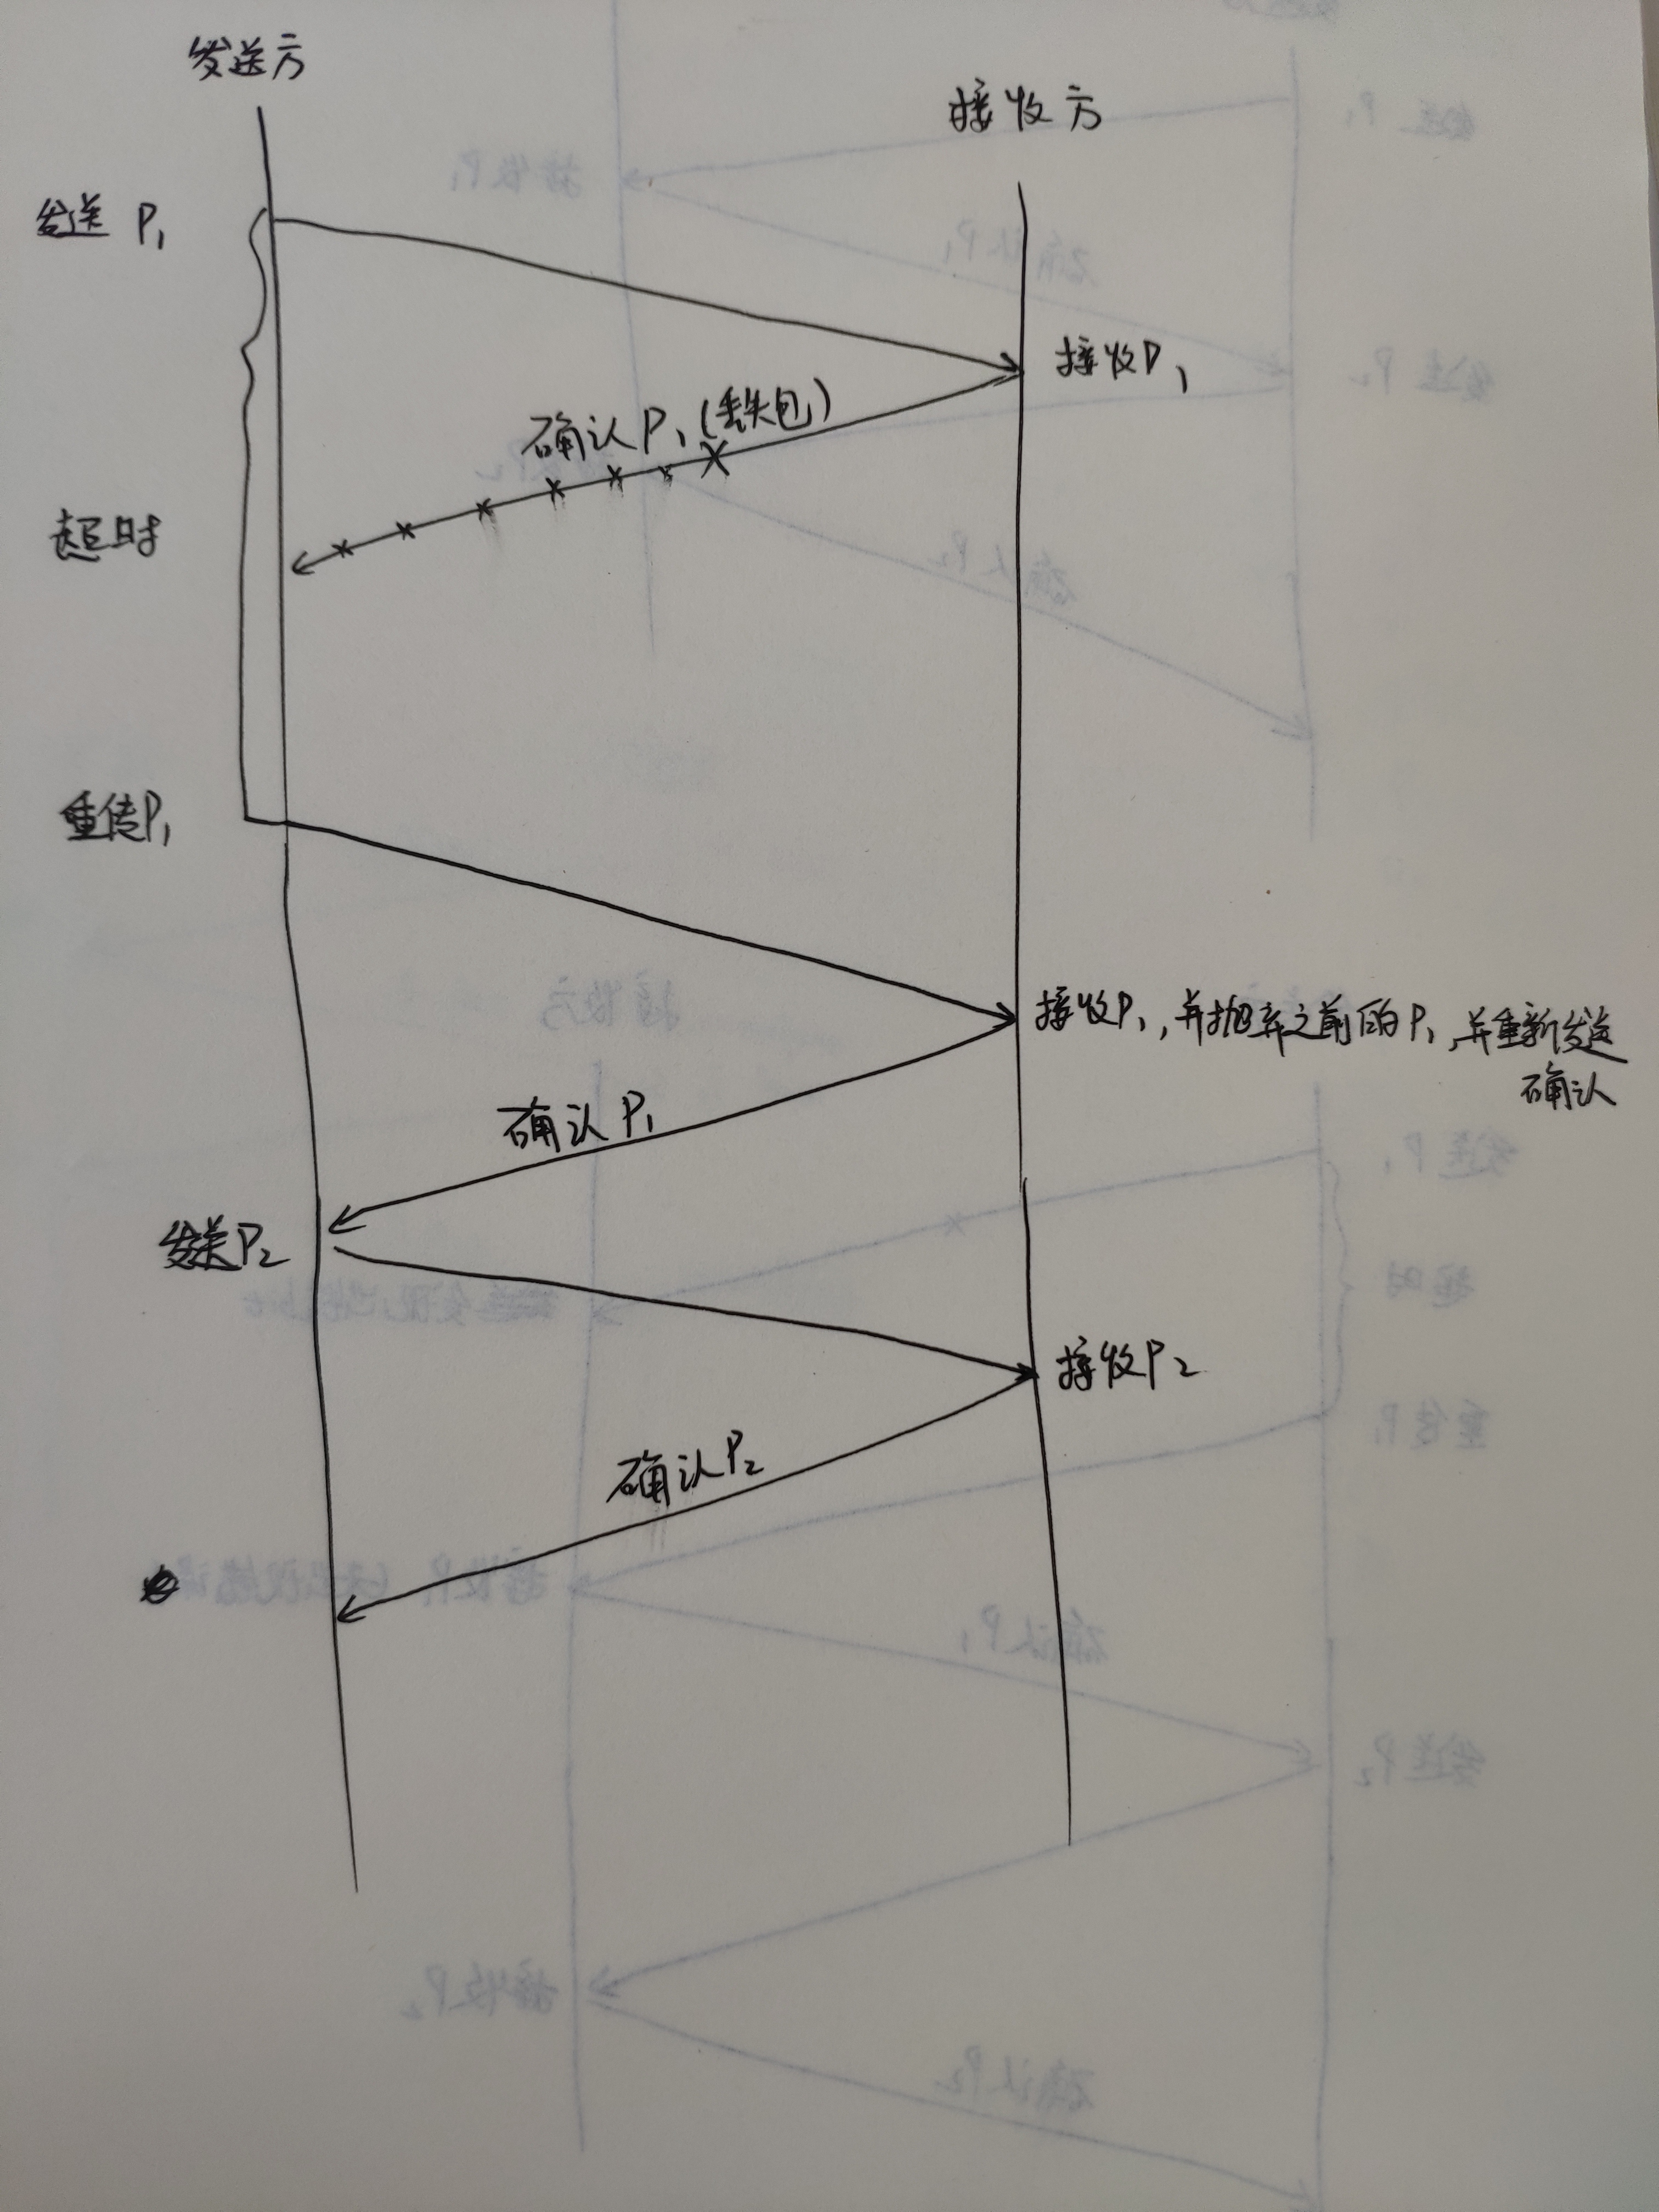 发送方
接收方
发送 P1
接收P1
确认P1(丢失包)
超时
重传P1
接收P1,并抛弃之前的P1,并重新发送
确认
确认P1
发送P2
接收P2
确认P2